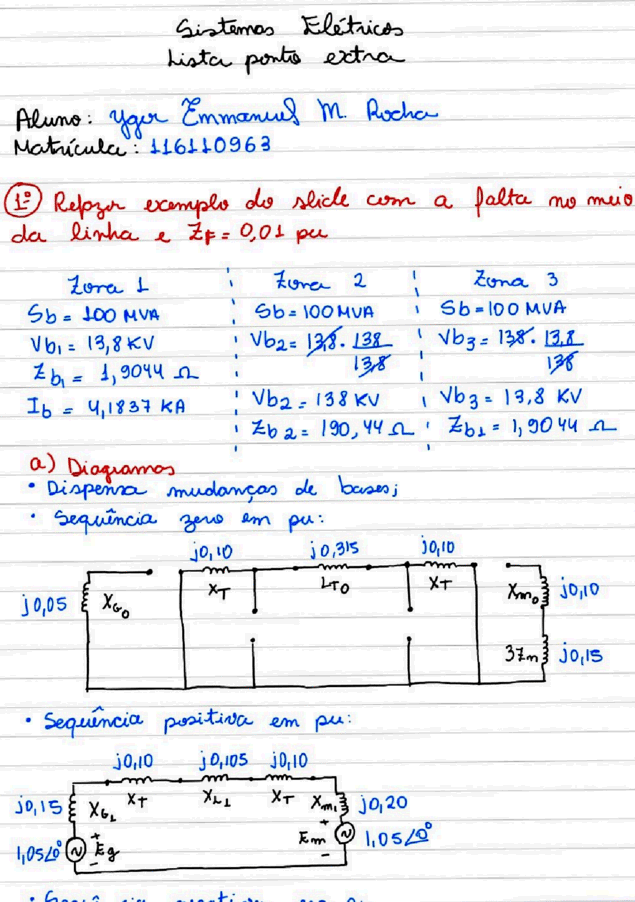 Sistemas Elétricos
Lista ponto extra
Aluno: Ygor Emmanuel M. Rocha
Matrícula: 116110963
1º Refazer exemplo do slide com a falta no meio
da linha e ZF = 0,01 pu
Zona 1
Sb = 100 MVA
Vb1 = 13,8 KV
Zb1 = 1,9044 Ω
Ib = 4,1837 KA
Zona 2
Sb = 100 MVA
Vb2 = 13,8 . 138/13,8
Vb2 = 138 KV
Zb2 = 190,44 Ω
Zona 3
Sb = 100 MVA
Vb3 = 138 . 13,8/138
Vb3 = 13,8 KV
Zb1 = 1,9044 Ω
a) Diagramas
• Dispensa mudanças de bases;
• Sequência zero em pu:
j0,10 j0,315 j0,10
j0,05 XG0 XT LT0 XT Xm0 j0,10
3Zm j0,15
• Sequência positiva em pu:
j0,10 j0,105 j0,10
j0,15 XG1 XT XL1 XT Xm1 j0,20
1,05∠0° + Eg - + Em - 1,05∠0°